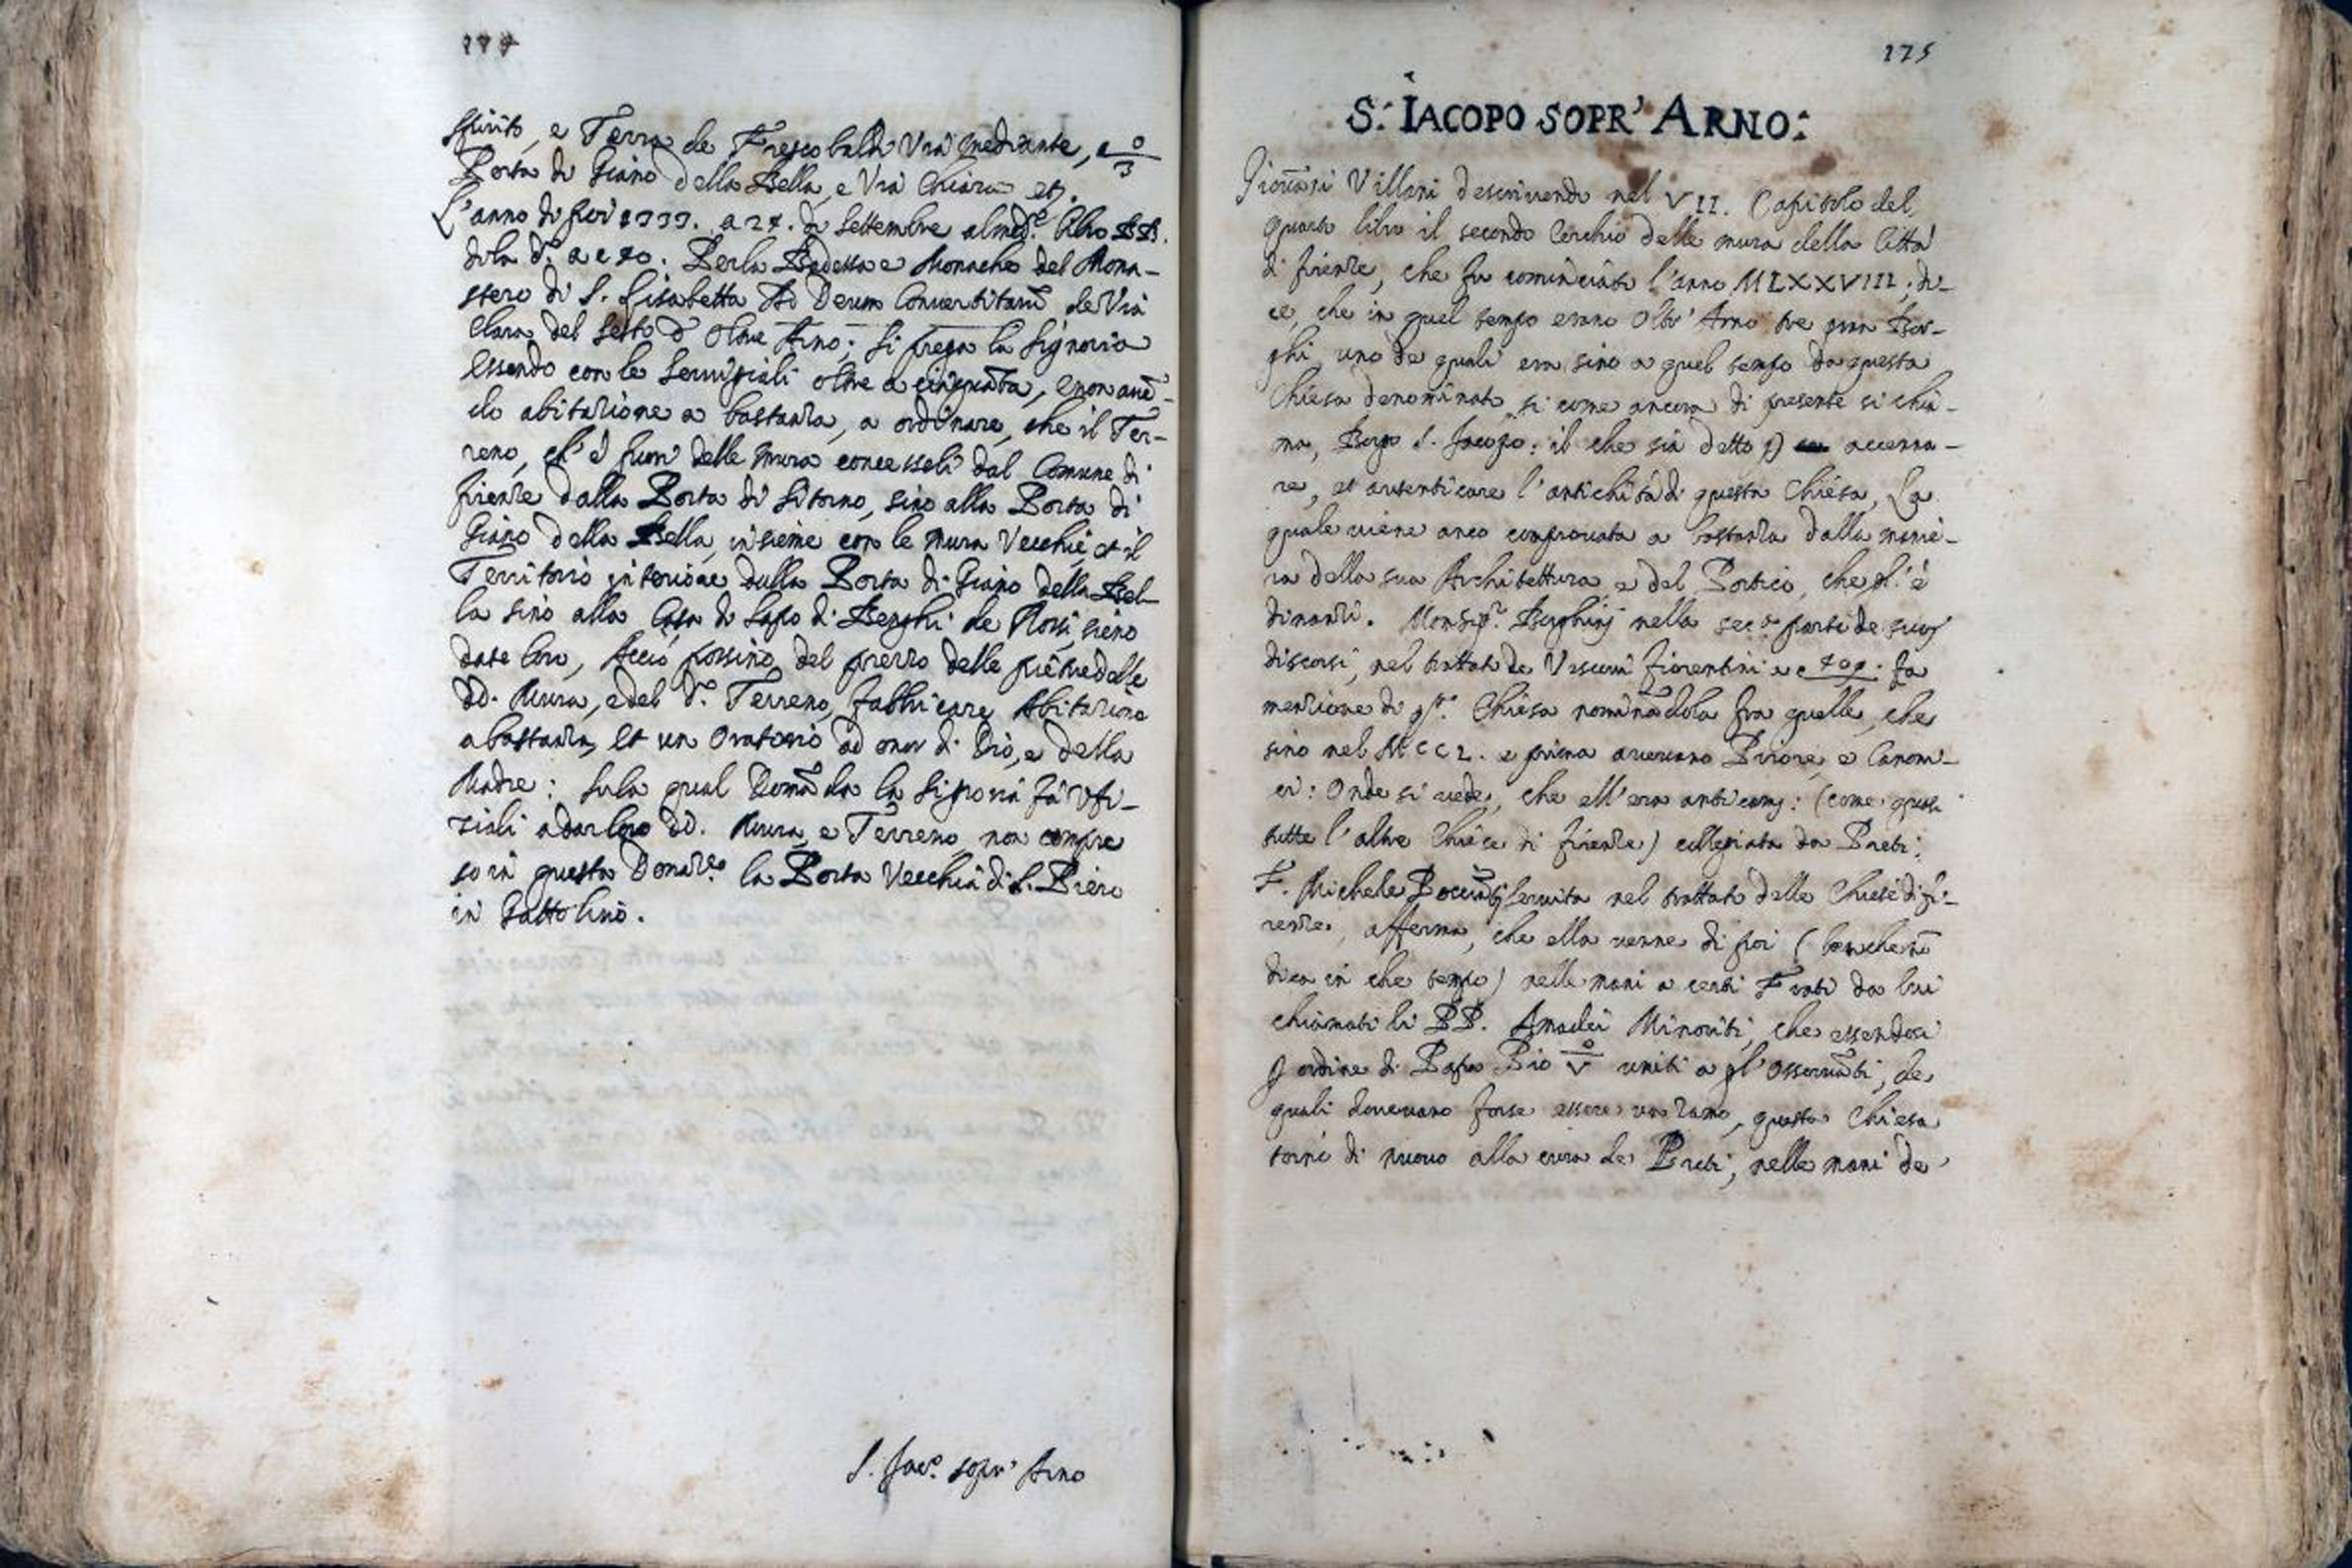 174
Spirito, e Terra de Frescobaldi Via mediante, e 0/3
Porta di Giano della Bella, e Via Chiara etc.
L'anno di poi 1333. a 24. di Settembre al med.º libro BB.
Perla Badessa e Monache del Mona-
stero di S. Lisabetta Ad Deum Convertitarū de Via
Clara del Sesto d'Oltre Arno; si prega la Signoria
essendo con le Serviziali oltre a cinquāta, e non avē-
do abitazione a bastanza, a ordinare, che il Ter-
reno, ch'è fuori delle mura concesseli dal Comune di
firenze dalla Porta di Sitorno, sino alla Porta di
Giano della Bella, insieme con le mura Vecchie, et il
Territorio interiore dalla Porta di Giano della Bel-
la sino alla Casa di Lapo di Benghi de Rossi, sieno
date loro, Acciò possino del prezzo delle pietre delle
DD. Mura, e del D.º Terreno, fabbricare Abitazione
a bastanza, et un Oratorio ad onor di Dio, e della
Madre: Sula qual Domāda la Signoria fà Ufi-
ziali a dar loro DD. Mura, e Terreno, non compre
so in questa Donaz.ne la Porta Vecchia di S. Piero
in Gattolino.
S. Iac.º sopr' Arno
175
S. IACOPO SOPR' ARNO:
Giovāni Villani descrivendo nel VII. Capitolo del
quarto libro il secondo Cerchio delle mura della Città
di firenze, che fu cominciato l'anno MLXXVIII, di-
ce, che in quel tempo erano Oltr' Arno tre gran Bor-
ghi, uno de quali era sino a quel tempo da questa
Chiesa denominato, si come ancora di presente si chia-
ma, Borgo S. Jacopo: il che sia detto p) accenna-
re, et autenticare l'antichità di questa Chiesa, La
quale viene anco comprovata a bastanza dalla manie-
ra della sua Architettura, e del Portico, che gl'è
dinanzi. Monsig.r Borghinj nella sec.da parte de suoj
discorsi, nel trattato de Vescovi fiorentini a c 409. fa
menzione di q.sta Chiesa nomināndola fra quelle, che
sino nel MCCL. e prima avevano Priore, e Canoni-
ci: Onde si vede, che ell'era anticam.: (come quasi
tutte l'altre Chiese di firenze) collegiata da Preti;
F. Michele Pocciātj Servita nel trattato delle Chiese di fi-
renze, afferma, che ella venne di poi (benche nō
dica in che tempo) nelle mani a certi Frati da lui
chiamati li PP. Amadei Minoriti, che essendosi
p ordine di Papa Pio V uniti a gl'Osservāti, de
quali dovevano forse essere un ramo, questa Chiesa
tornò di nuovo alla cura de Preti, nelle mani de